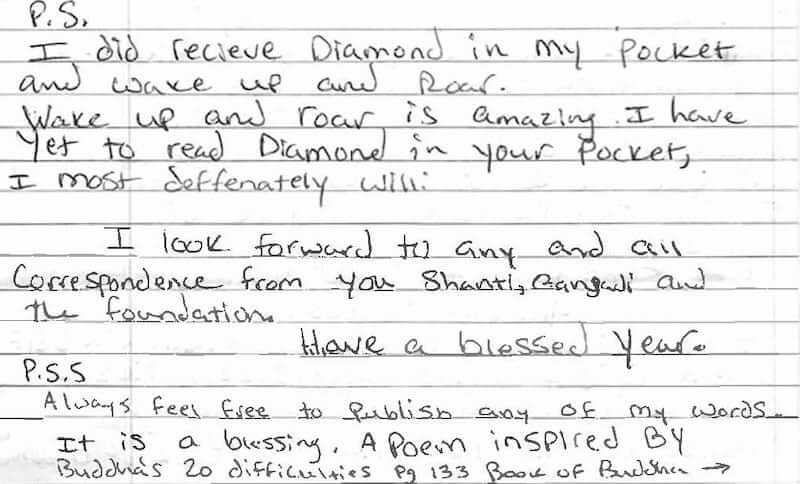 P.S.
I did recieve Diamond in my pocket
and wake up and Roar.
Wake up and roar is amazing. I have
Yet to read Diamond in your Pocket,
I most deffenately will.
I look forward to any and all
Correspondence from you Shanti, Gangaji and
the foundation.
Have a blessed Year.
P.S.S
Always feel free to publish any of my words.
It is a blessing. A Poem inspired BY
Buddha's 20 difficulties Pg 133 Book of Buddha →